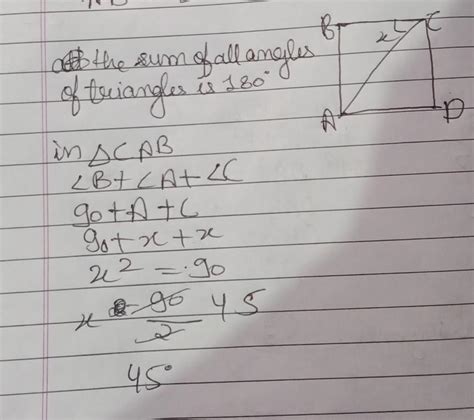 B C
x
the sum of all angles
of triangles is 180°
A D
in △CAB
∠B+∠A+∠C
90+A+C
90+x+x
x² = 90
x 90/2 45
45°